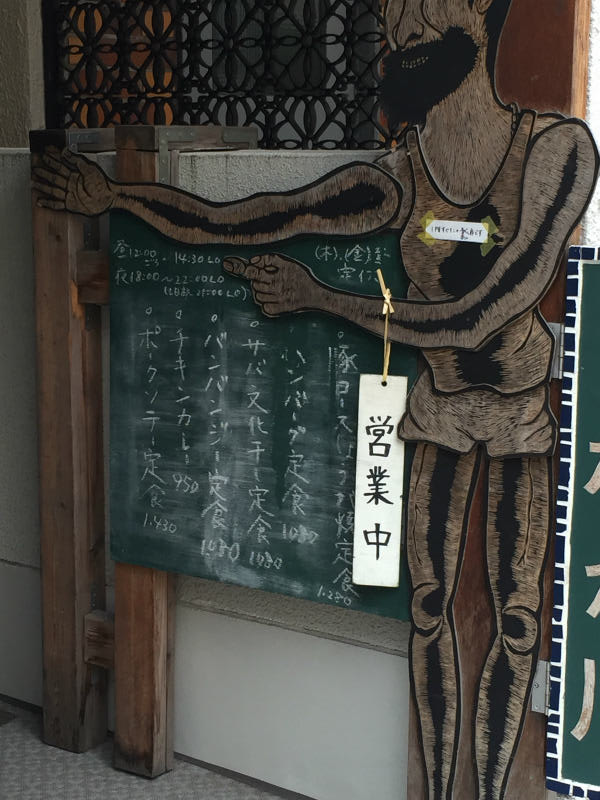 昼12:00〜14:30LO
夜18:00〜22:00LO
(木)、(金)昼
定休
豚ロースしょうが焼定食
1.280
ハンバーグ定食
1080
サバ文化干し定食
1080
バンバンジー定食
1080
チキンカレー
950
ポークソテー定食
1.430
営業中